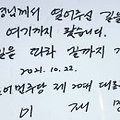 님께서 열어주신 길을
여기까지 왔습니다.
길을 따라 끝까지 가
2021. 10. 22.
어민주당 제20대 대
이 재